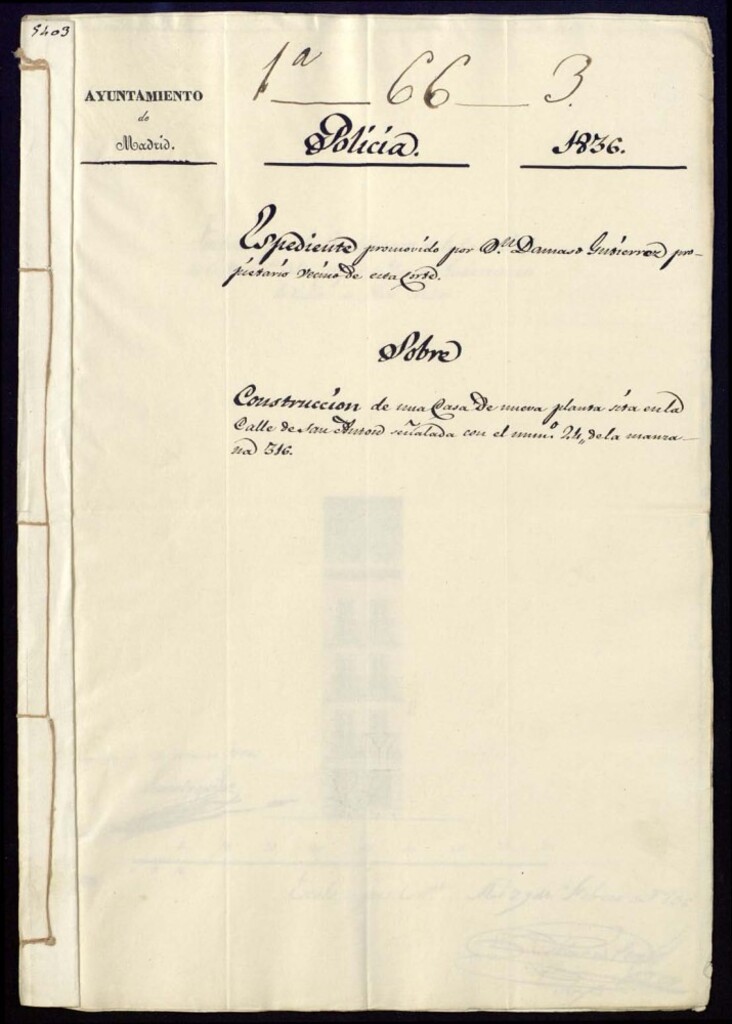 5403
1ª 66 3.
AYUNTAMIENTO
de
Madrid.
Policia.
1836.
Espediente promovido por Dn. Damaso Gutierrez pro-
pietario vecino de esta Corte.
Sobre
Construccion de una Casa de nueva planta sita en la
Calle de San Anton señalada con el numº 24, de la manza-
na 316.